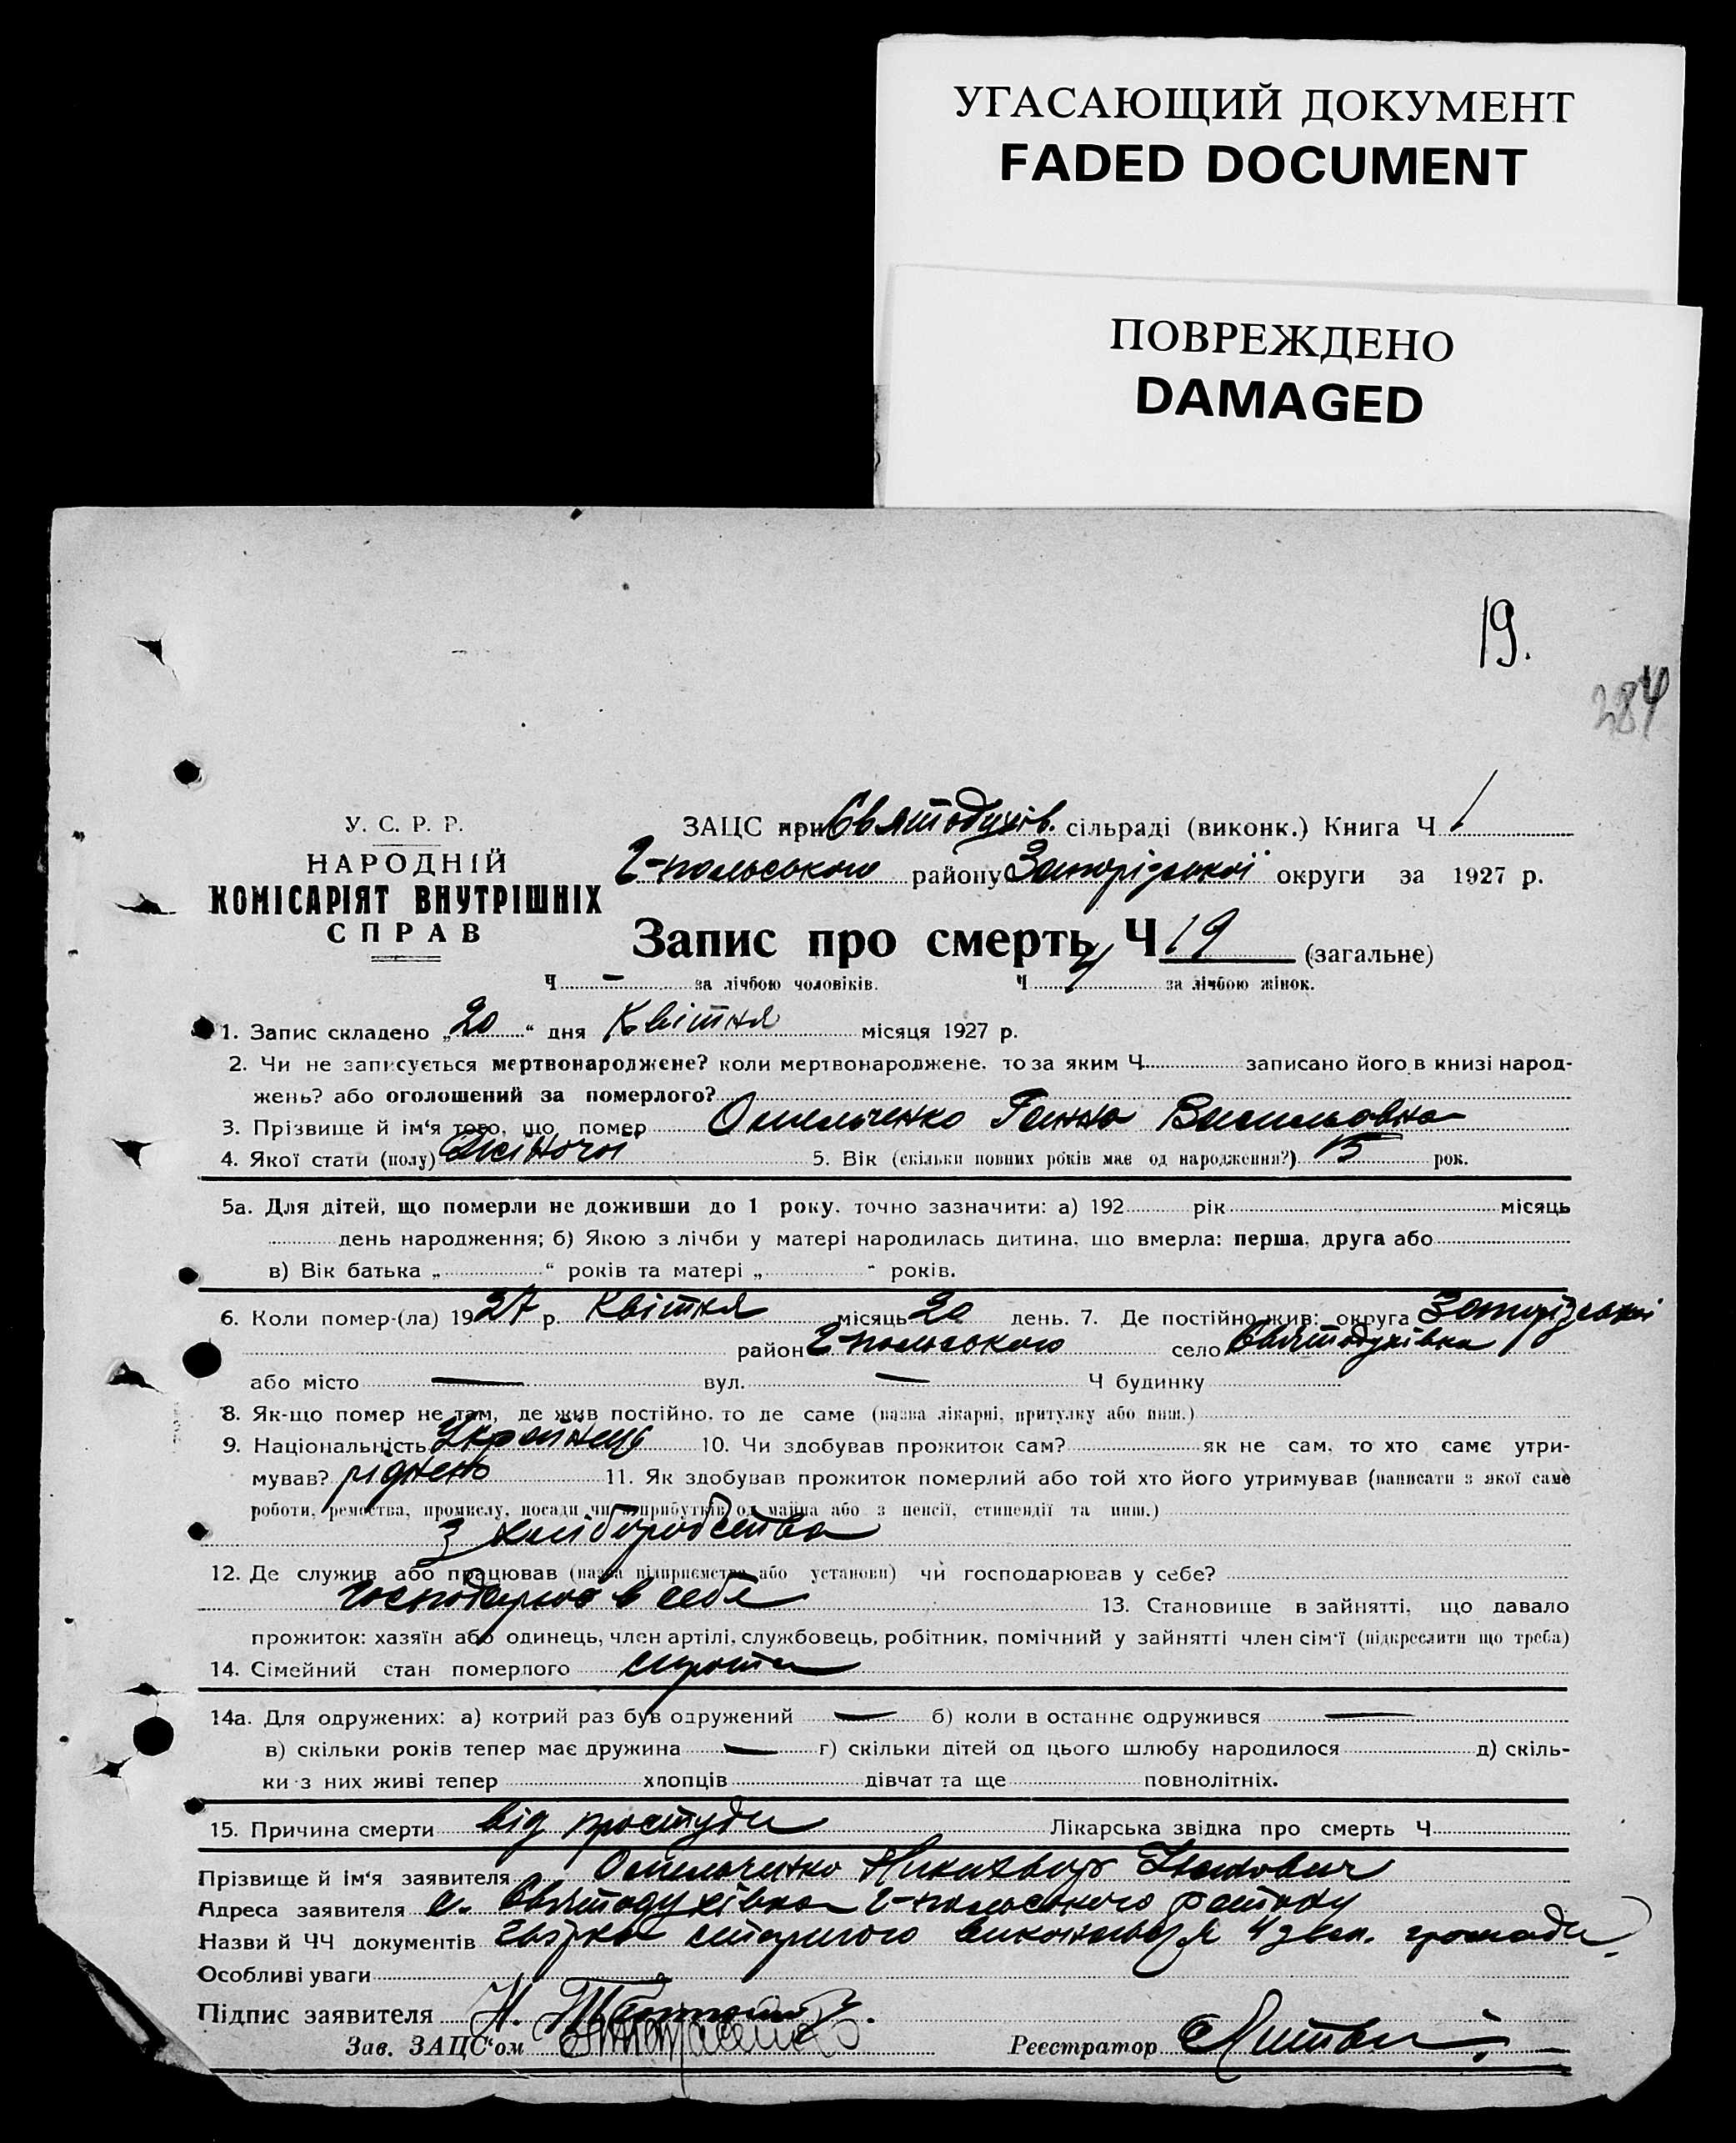 УГАСАЮЩИЙ ДОКУМЕНТ
FADED DOCUMENT
ПОВРЕЖДЕНО
DAMAGED
19.
284
У. С. Р. Р.
НАРОДНІЙ
КОМІСАРІЯТ ВНУТРІШНІХ
СПРАВ
ЗАЦС при Святодухів. сільраді (виконк.) Книга Ч 1
Г-польського району Запорізької округи за 1927 р.
Запис про смерть Ч 19 (загальне)
Ч. – за лічбою чоловіків. Ч. за лічбою жінок.
1. Запис складено „20“ дня Квітня місяця 1927 р.
2. Чи не записується мертвонароджене? коли мертвонароджене, то за яким Ч. записано його в книзі народ-
жень? або оголошений за померлого?
3. Прізвище й ім‘я того, що помер Омельченко Ганна Васильовна
4. Якої стати (полу) Жіночої 5. Вік (скільки повних років має од народження?) 15 рок.
5а. Для дітей, що померли не доживши до 1 року, точно зазначити: а) 192 рік місяць
день народження; б) Якою з лічби у матері народилась дитина, що вмерла: перша, друга або
в) Вік батька „ “ років та матері „ “ років.
6. Коли помер-(ла) 1927 р. Квітня місяць 20 день. 7. Де постійно жив: округа Запорізької
район Г-польського село Святодухівка
або місто — вул. — Ч будинку
8. Як-що помер не там, де жив постійно, то де саме (назва лікарні, притулку або инш.)
9. Національність Українець 10. Чи здобував прожиток сам? як не сам, то хто саме утри-
мував? 11. Як здобував прожиток померлий або той хто його утримував (написати з якої саме
роботи, ремества, промислу, посади чи з прибутків од майна або з пенсії, стипендії та инш.)
З хліборобства
12. Де служив або працював (назва підприємства або установи) чи господарював у себе?
господарюв в себе 13. Становище в зайнятті, що давало
прожиток: хазяїн або одинець, член артілі, службовець, робітник, помічний у зайнятті член сім‘ї (підкреслити що треба)
14. Сімейний стан померлого сирота
14а. Для одружених: а) котрий раз був одружений — б) коли в останнє одружився —
в) скільки років тепер має дружина — г) скільки дітей од цього шлюбу народилося д) скіль-
ки з них живі тепер хлопців дівчат та ще повнолітніх.
15. Причина смерти від простуди Лікарська звідка про смерть Ч
Прізвище й ім‘я заявителя Омельченко
Адреса заявителя с. Святодухівка Г-польського району
Назви й ЧЧ документів старшого виконавця громади
Особливі уваги
Підпис заявителя
Зав. ЗАЦС‘ом
Реєстратор